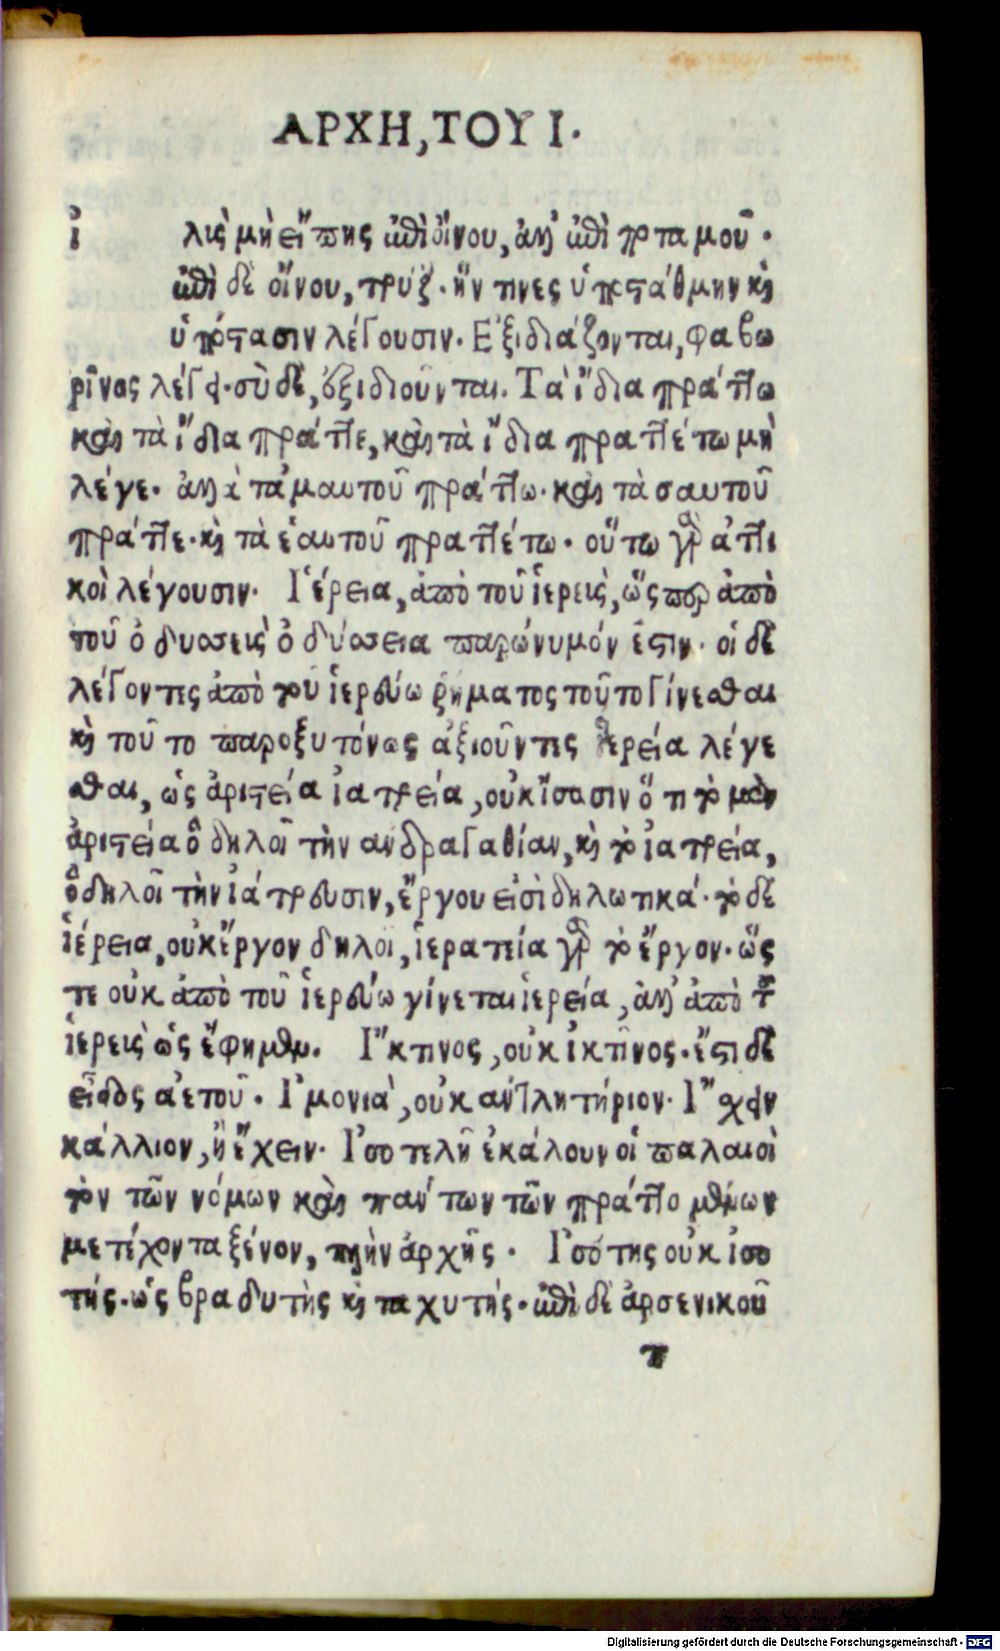 ΑΡΧΗ, ΤΟΥ Ι.
ἰλὺς μὴ εἴπῃς ἐπὶ οἴνου, ἀλλ' ἐπὶ ποταμοῦ.
ἐπὶ δὲ οἴνου, τρύξ. ἥν τινες ὑποστάθμην καὶ
ὑπόστασιν λέγουσιν. Ἐξιδιάζονται, φαβω
ρῖνος λέγει. σὺ δὲ, ἐξιδιοῦνται. Τὰ ἴδια πράττω
καὶ τὰ ἴδια πράττε, καὶ τὰ ἴδια πραττέτω μὴ
λέγε. ἀλλὰ τἀμαυτοῦ πράττω. καὶ τὰ σαυτοῦ
πράττε. καὶ τὰ ἑαυτοῦ πραττέτω. οὕτω γὰρ ἀττι
κοὶ λέγουσιν. Ἱέρεια, ἀπὸ τοῦ ἱερεὺς, ὥσπερ ἀπὸ
τοῦ ὀδυσσεὺς ὀδύσσεια παρώνυμόν ἐστιν. οἱ δὲ
λέγοντες ἀπὸ τοῦ ἱερεύω ῥήματος τοῦτο γίνεσθαι
καὶ τοῦτο παροξυτόνως ἀξιοῦντες ἱερεία λέγε
σθαι, ὡς ἀριστεία ἰατρεία, οὐκ ἴσασιν ὅτι τὸ μὲν
ἀριστεία ὃ δηλοῖ τὴν ἀνδραγαθίαν, καὶ τὸ ἰατρεία,
ὃ δηλοῖ τὴν ἰάτρευσιν, ἔργου εἰσὶ δηλωτικά. τὸ δὲ
ἱέρεια, οὐκ ἔργον δηλοῖ, ἱερατεία γὰρ τὸ ἔργον. ὥς
τε οὐκ ἀπὸ τοῦ ἱερεύω γίνεται ἱερεία, ἀλλ' ἀπὸ τοῦ
ἱερεὺς ὡς ἔφημεν. Ἴκτινος, οὐκ ἰκτῖνος. ἔστι δὲ
εἶδος ἀετοῦ. Ἱμονιὰ, οὐκ ἀντλητήριον. Ἴσχειν
κάλλιον, ἢ ἔχειν. Ἰσοτελῆ ἐκάλουν οἱ παλαιοὶ
τὸν τῶν νόμων καὶ πάντων τῶν πραττομένων
μετέχοντα ξένον, πλὴν ἀρχῆς. Ἰσότης οὐκ ἰσο
τής. ὡς βραδυτὴς καὶ παχυτής. ἐπὶ δὲ ἀρσενικοῦ
π
Digitalisierung gefördert durch die Deutsche Forschungsgemeinschaft - DFG